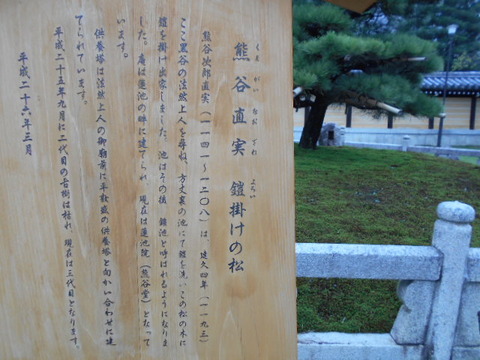 熊谷直実 鎧掛けの松
くまがいなおざね よろい
熊谷次郎直実(一一四一~一二〇八)は、建久四年(一一九三)
ここ黒谷の法然上人を尋ね、方丈裏の池にて鎧を洗いこの松の木に
鎧を掛け出家しました。池はその後、鎧池と呼ばれるようになりま
した。庵は蓮池の畔に建てられ、現在は蓮池院(熊谷堂)となって
います。
供養塔は法然上人の御廟前に平敦盛の供養塔と向かい合わせに建
てられています。
平成二十五年九月に二代目の古樹は枯れ、現在は三代目となります。
平成二十六年三月